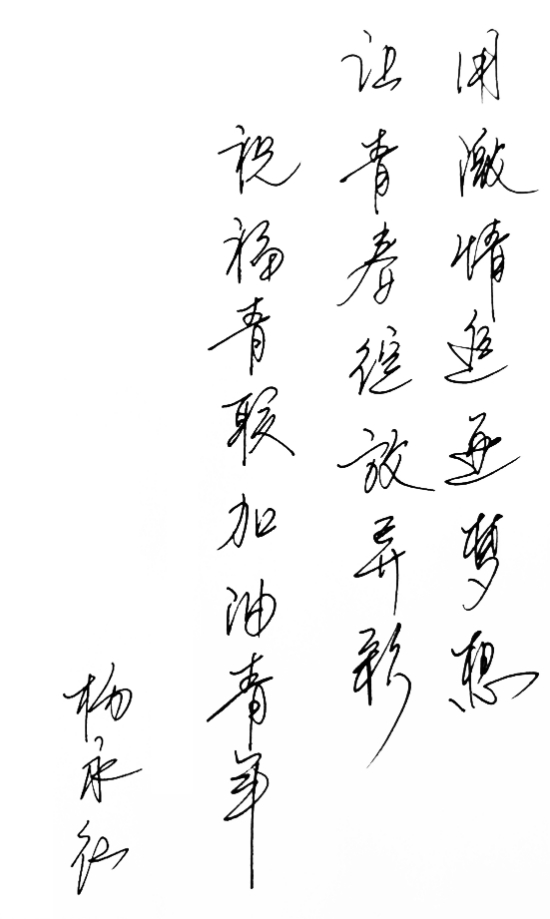 用激情追逐梦想
让青春绽放异彩
祝福青联加油青年
杨永